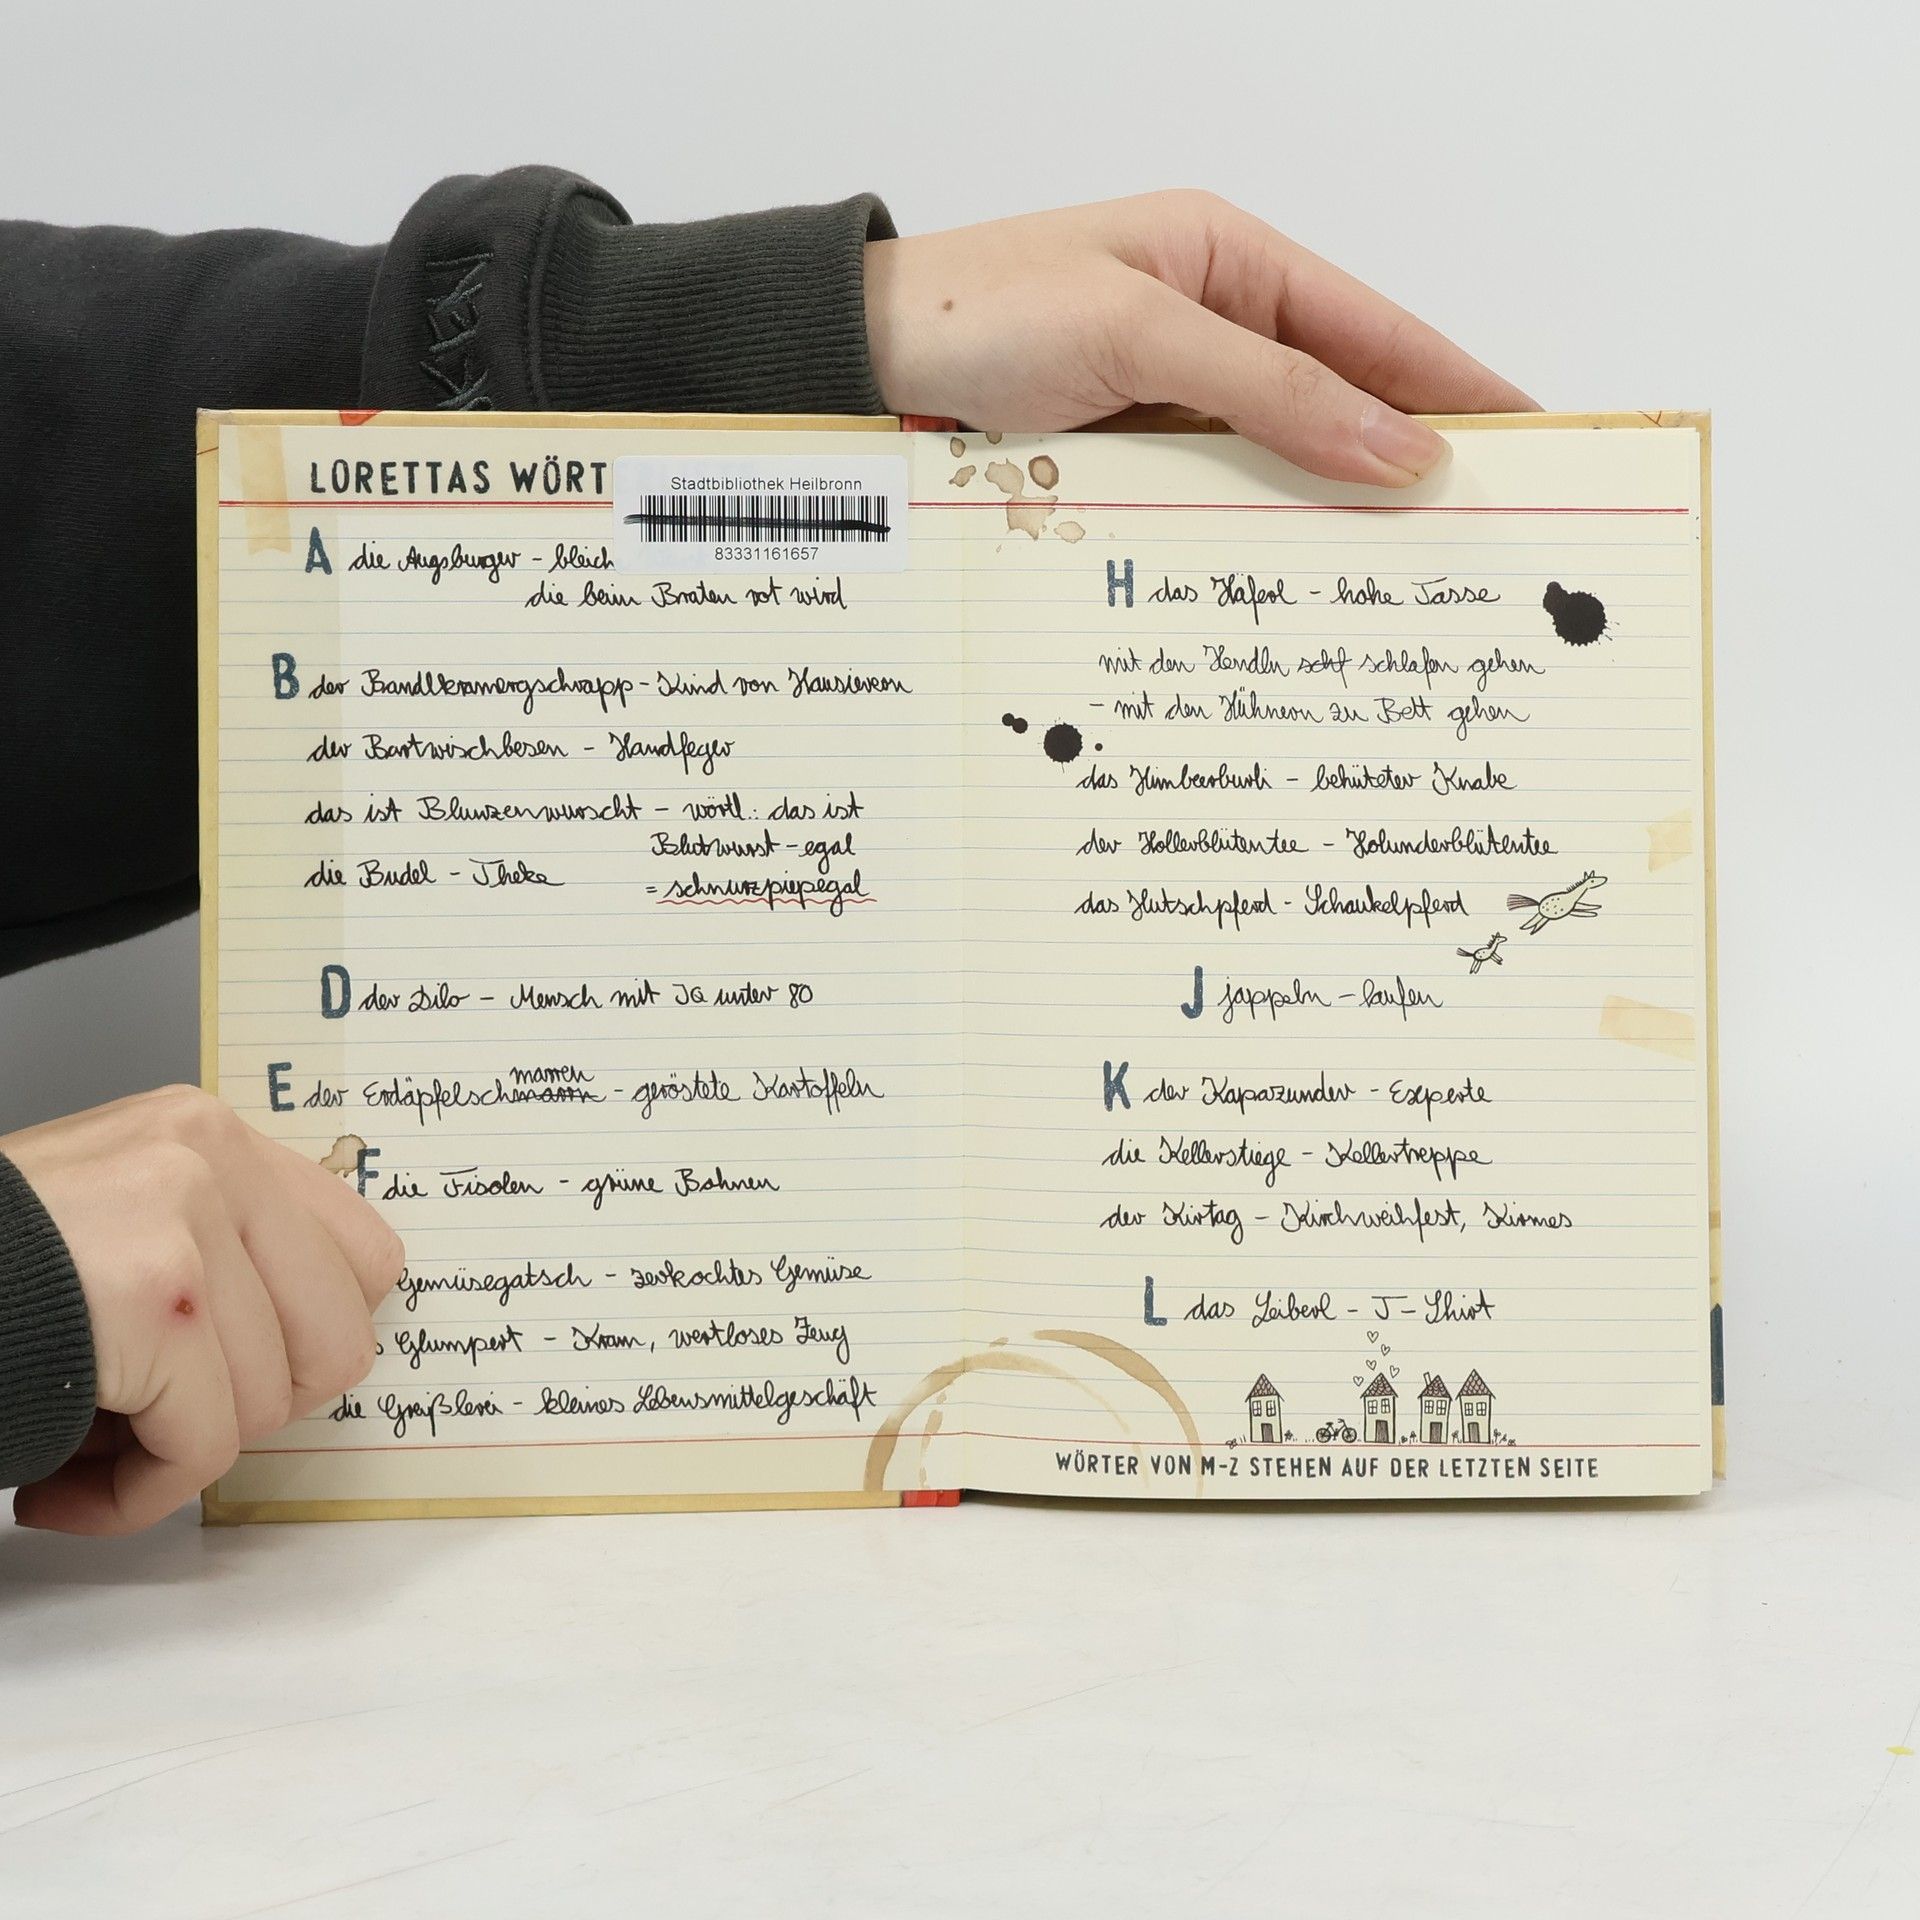 LORETTAS WÖRT
Stadtbibliothek Heilbronn
83331161657
A die Augsburger - bleich
die beim Braten rot wird
B der Bandlkramergschrapp - Kind von Hausierern
der Bartwischbesen - Handfeger
das ist Blunzenwurscht - wörtl.: das ist
Blutwurst - egal
die Budel - Theke
= schnurzpiepegal
D der Dilo - Mensch mit IQ unter 80
marren
E der Erdäpfelschmarrn - geröstete Kartoffeln
F die Fisolen - grüne Bohnen
Gemüsegatsch - zerkochtes Gemüse
s Glumpert - Kram, wertloses Zeug
die Greißlerei - kleines Lebensmittelgeschäft
H das Häferl - hohe Tasse
mit den Hendln schf schlafen gehen
- mit den Hühnern zu Bett gehen
das Himbeerburli - behüteter Knabe
der Hollerblütentee - Holunderblütentee
das Hutschpferd - Schaukelpferd
J jappeln - laufen
K der Kapazunder - Experte
die Kellerstiege - Kellertreppe
der Kirtag - Kirchweihfest, Kirmes
L das Leiberl - T-Shirt
WÖRTER VON M-Z STEHEN AUF DER LETZTEN SEITE